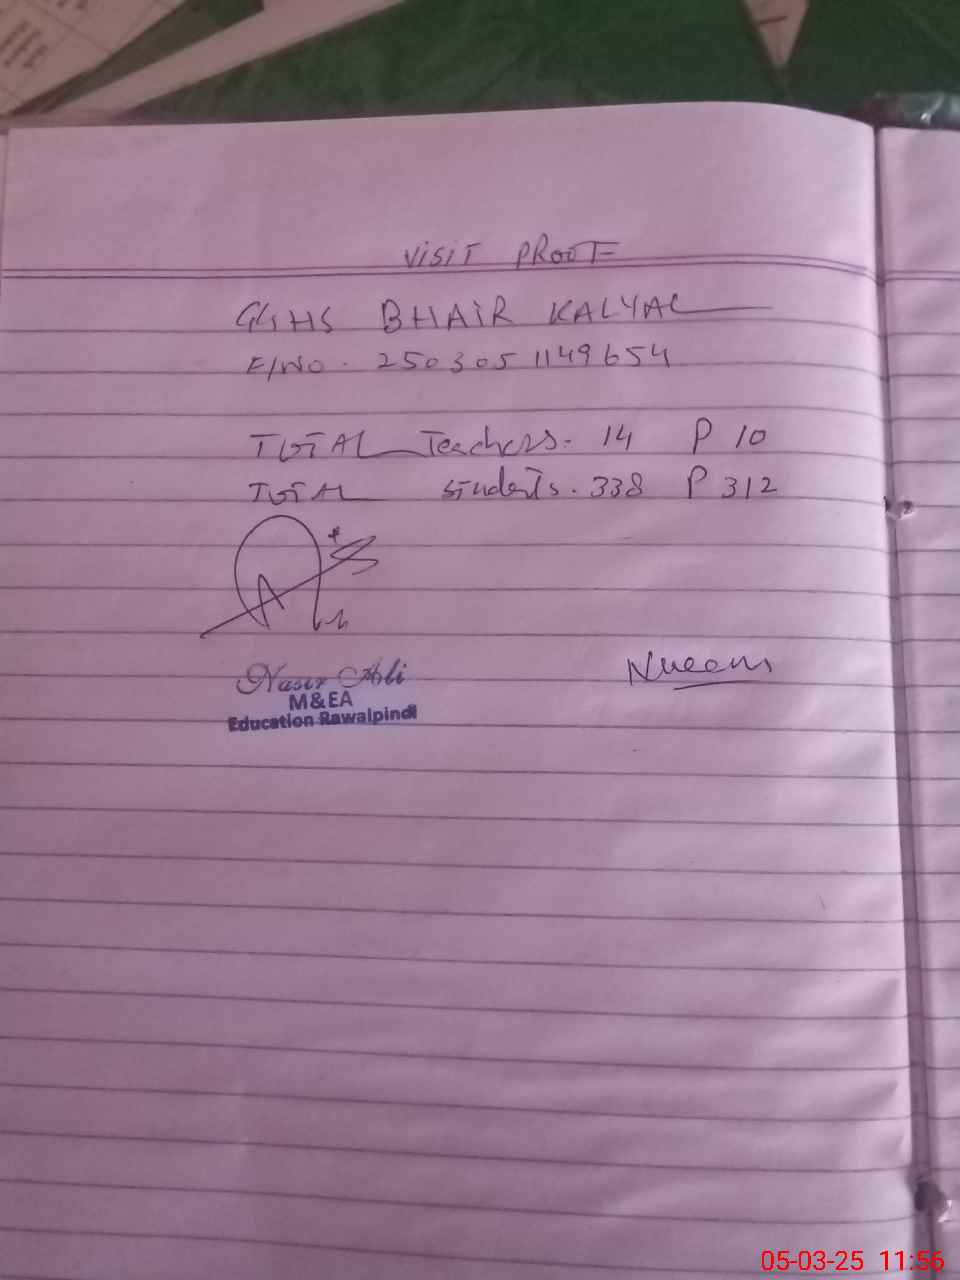 VISIT PROOF
GGHS BHAIR KALYAL
E/NO. 2503051149654
TOTAL Teachers. 14 P 10
TOTAL students. 338 P 312
Nasir Ali
M&EA
Education Rawalpindi
05-03-25 11:56